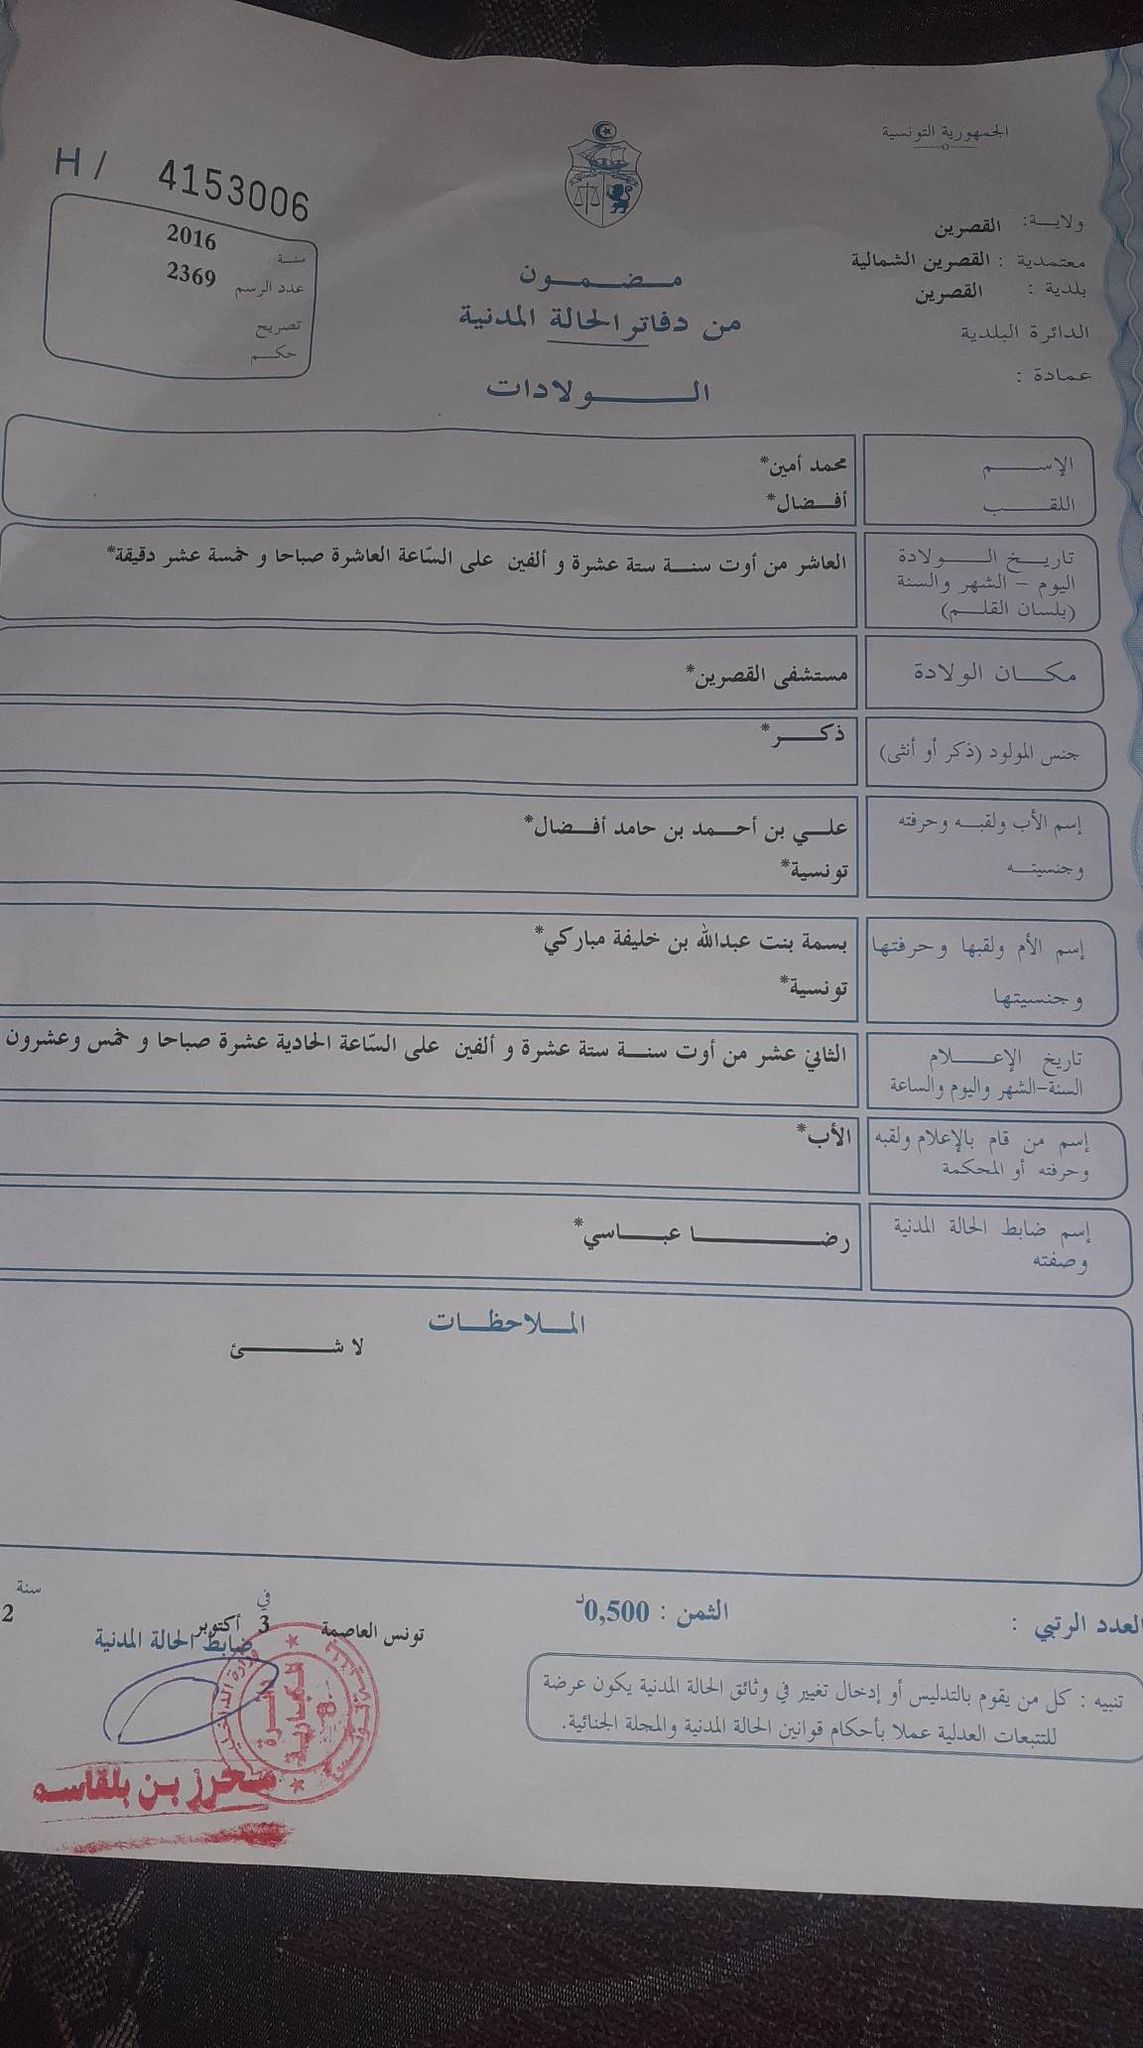 الجمهورية التونسية
H / 4153006
ولايـــة: القصرين
معتمدية : القصرين الشمالية
بلدية : القصرين
الدائرة البلدية
عمادة :
سنـــة 2016
عدد الرسم 2369
تصريح
حكـــم
مـــضـــمـــون
من دفاتر الحالة المدنية
الـــــولادات
الإســـــم محمد أمين*
اللقـــــب أفـــضال*
تاريـــخ الـــــولادة
اليوم - الشهر والسنة
(بلسان القلـــم)
العاشر من أوت سنـــة ستة عشرة و ألفين على السّاعة العاشرة صباحا و خمسة عشر دقيقة*
مكـــان الولادة مستشفى القصرين*
جنس المولود (ذكر أو أنثى) ذكـــر*
إسم الأب ولقبـــه وحرفته علـــي بن أحـــمد بن حامد أفـــضال*
وجنسيتـــه تونسية*
إسم الأم ولقبها وحرفتها بسمة بنت عبدالله بن خليفة مباركي*
وجنسيتـها تونسية*
تاريخ الإعـــلام
السنة-الشهر واليوم والساعة
الثاني عشر من أوت سنـــة ستة عشرة و ألفين على السّاعة الحادية عشرة صباحا و خمس وعشرون
إسم من قام بالإعلام ولقبه الأب*
وحرفته أو المحكمة
إسم ضابط الحالة المدنية رضـــــا عبـــاسي*
وصفته
المـــلاحظـــات
لا شـــــئ
العدد الرتبي :
الثمن : 0,500د
تونس العاصمة في 3 أكتوبر سنة 2
ضابط الحالة المدنية
تنبيه : كل من يقوم بالتدليس أو إدخال تغيير في وثائق الحالة المدنية يكون عرضة
للتتبعات العدلية عملا بأحكام قوانين الحالة المدنية والمجلة الجنائية.
محرز بن بلقاسم